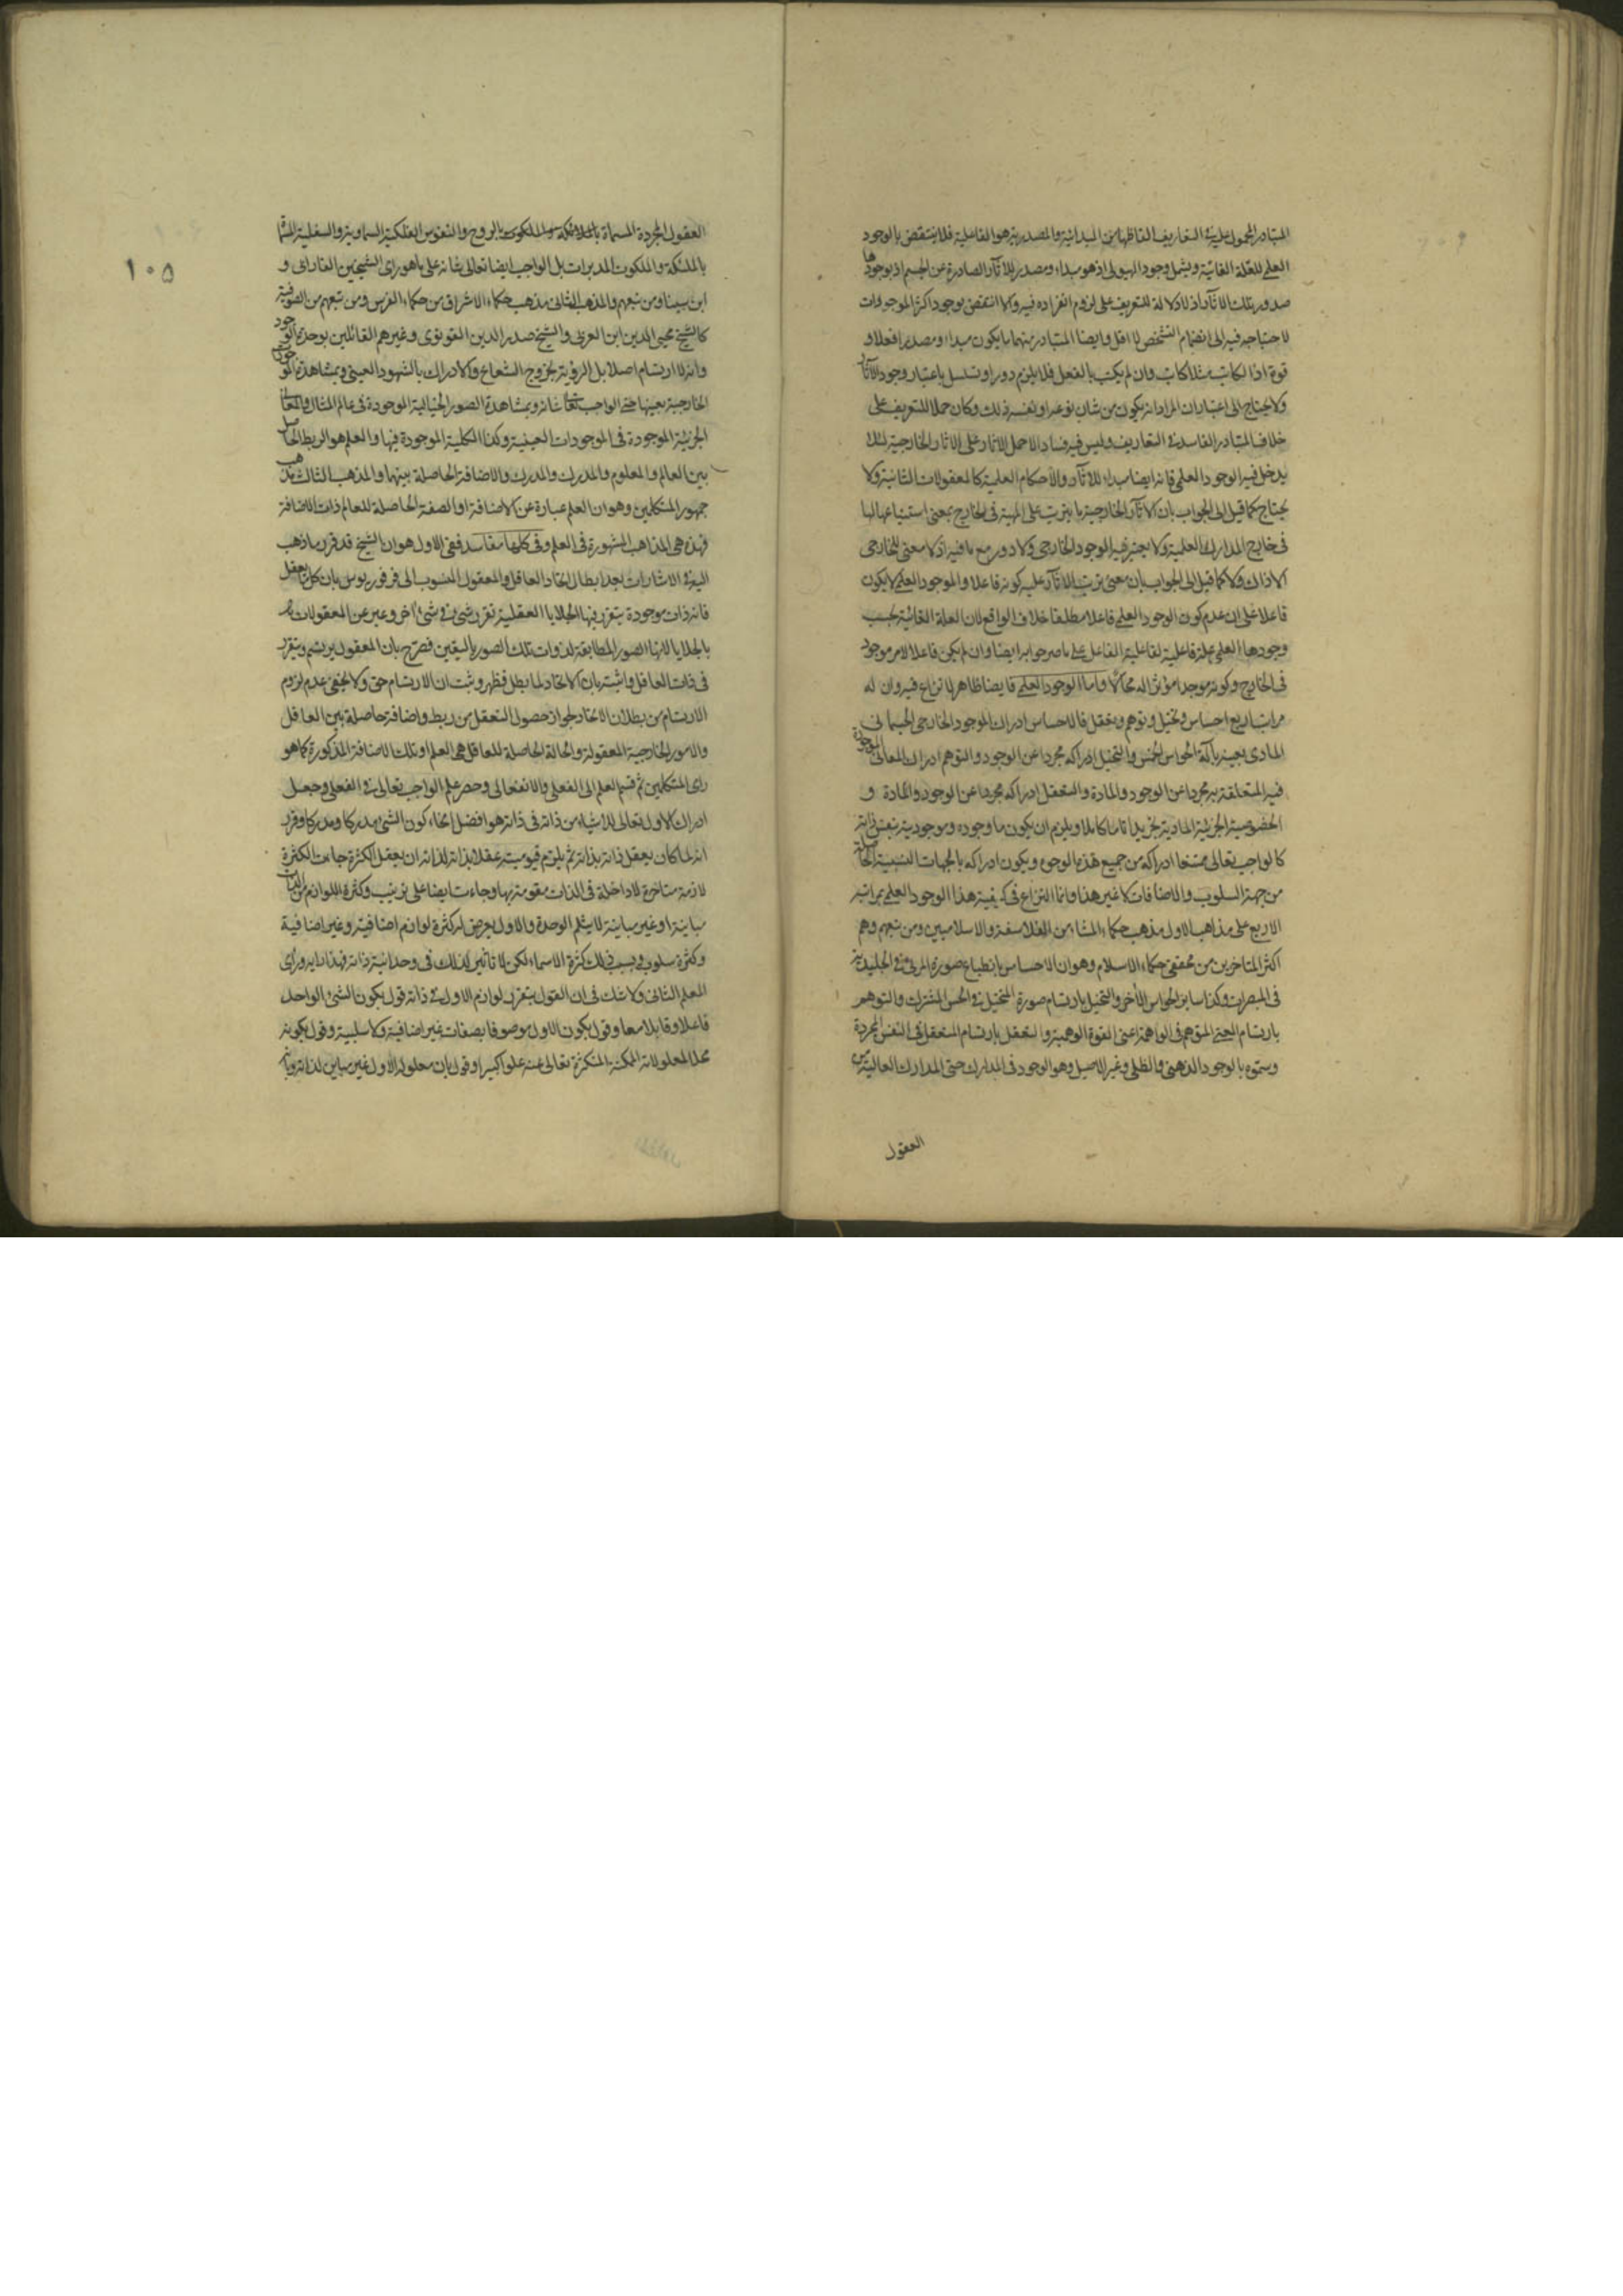 المتبادر المحمول عليه في التعاريف الفاظها من المبدائية والمصدرية هو الفاعلية فلا ينتقض بالوجود
العلمي للعلة الغائية ويشمل وجود الهيولى اذ هو مبداء ومصدر للاثار الصادرة عن الجسم اذ بوجودها
صدور تلك الاثار اذ لا دلالة للتعريف على لزوم انفراده فيه والا انتقض بوجود اكثر الموجودات
لاحتياجه فيه الى انضمام التشخص لا اقل وايضا المتبادر منهما ما يكون مبداء ومصدرا فعلا او
قوة اذ الكاتب مثلا كاتب وان لم يكتب بالفعل فلا يلزم دور او تسلسل باعتبار وجود الاثار
ولا يحتاج الى اعتبار ان المراد انه يكون من شان نوعه او نفسه ذلك وكان حملا للتعريف على
خلاف المتبادر الفاسد في التعاريف وليس فيه فساد الا حمل الاثار على الاثار الخارجية لئلا
يدخل فيه الوجود العلمي فانه ايضا مبداء للاثار والاحكام العلمية كالمعقولات الثانية ولا
يحتاج كما قيل الى الجواب بان الاثار الخارجية ما يترتب على المهية في الخارج بمعنى استتباعها لها
في خارج المدارك العلمية ولا يعتبر فيه الوجود الخارجي ولا دور مع ما فيه اذ لا معنى للخارجي
الا ذاك ولا كما قيل الى الجواب بان معنى ترتب الاثار عليه كونه فاعلا والموجود العلمي لا يكون
فاعلا على ان عدم كون الوجود العلمي فاعلا مطلقا خلاف الواقع لان العلة الغائية بحسب
وجودها العلمي علة فاعلية لفاعلية الفاعل على ما صرحوا به ايضا وان لم يكن فاعلا لامر موجود
في الخارج وكونه موجدا مؤثرا له محالا واما الوجود العلمي فايضا ظاهر لا نزاع فيه وان له
مراتب اربع احساس وتخيل وتوهم وتعقل فالاحساس ادراك الموجود الخارجي الجسماني
المادي بعينه بآلة الحواس الخمس والتخيل ادراكه مجردا عن الوجود والتوهم ادراك المعاني الموجودة
فيه المتعلقة به مجردا عن الوجود والمادة والتعقل ادراكه مجردا عن الوجود والمادة و
الخصوصية الجزئية المادية تجريدا تاما كاملا ويلزم ان يكون ما وجوده وموجوديته بنفس ذاته
كالواجب تعالى ممتنعا ادراكه من جميع هذه الوجوه ويكون ادراكه بالجهات النسبية الحاصلة
من جهة السلوب والاضافات لا غير هذا وانما النزاع في كيفية هذا الوجود العلمي بمراتبه
الاربع على مذاهب الاول مذهب حكماء المشاء من الفلاسفة والاسلاميين ومن تبعهم وهم
اكثر المتاخرين من محققي حكماء الاسلام وهو ان الاحساس بانطباع صورة المرئي في الجليدية
في المبصرات وكذا ساير الحواس الاخر والتخيل بارتسام صورة المتخيل في الحس المشترك والتوهم
بارتسام المعنى المتوهم في الواهمة اعني القوة الوهمية والتعقل بارتسام المتعقل في النفس المجردة
وسموه بالوجود الذهني والظلي وغير الاصيل وهو الوجود في المدارك حتى المدارك العالية من
العقول
١٠٥
العقول المجردة المسماة بالروح والنفوس الفلكية السماوية والسفلية المسماة
بالملئكة والملكوت المدبرات بل الواجب ايضا تعالى شانه على ما هو راى الشيخين الفارابي و
ابن سينا ومن تبعهم والمذهب الثاني مذهب حكماء الاشراق من حكماء الفرس ومن تبعهم من الصوفية
كالشيخ محيي الدين ابن العربي والشيخ صدر الدين القونوي وغيرهم القائلين بوحدة الوجود
وانه لا ارتسام اصلا بل الروية بخروج الشعاع والادراك بالشهود العيني وبمشاهدة الموجودات
الخارجية بعينها حتى الواجب تعالى شانه وبمشاهدة الصور الخيالية الموجودة في عالم المثال والمعاني
الجزئية الموجودة في الموجودات العينية وكذا الكلية الموجودة فيها والعلم هو الربط الحاصل
بين العالم والمعلوم والمدرك والمدرك والاضافة الحاصلة بينهما والمذهب الثالث مذهب
جمهور المتكلمين وهو ان العلم عبارة عن الاضافة او الصفة الحاصلة للعالم ذات الاضافة
فهذه هي المذاهب المشهورة في العلم وفي كلها مفاسد ففي الاول هو ان الشيخ قد قرر ما ذهب
اليه في الاشارات بعد ابطال اتحاد العاقل والمعقول المنسوب الى فرفوريوس بان كل ما يعقل
فانه ذات موجودة يتقرر فيها الجلايا العقلية تقرر شيء في شيء اخر وعبر عن المعقولات
بالجلايا لانها الصور المطابقة لذوات تلك الصور باليقين فصرح بان المعقول يرتسم ويتقرر
في ذات العاقل واثبته بان الاتحاد لما بطل فظهر وثبت ان الارتسام حق ولا يخفى عدم لزوم
الارتسام من بطلان الاتحاد لجواز حصول التعقل من ربط واضافة حاصلة بين العاقل
والامور الخارجية المعقولة والحالة الحاصلة للعاقل هي العلم او تلك الاضافة المذكورة كما هو
راى المتكلمين ثم قسم العلم الى الفعلي والانفعالي وحصر علم الواجب تعالى في الفعلي وجعل
ادراك الاول تعالى للاشياء من ذاته في ذاته هو افضل انحاء كون الشيء مدركا ومدركا وقرر
انه لما كان يعقل ذاته بذاته ثم يلزم قيوميته عقلا بذاته لذاته ان يعقل الكثرة جاءت الكثرة
لازمة متاخرة لا داخلة في الذات مقومة بها وجاءت ايضا على ترتيب وكثرة اللوازم من الذات
مباينة او غير مباينة لا يثلم الوحدة والاول يعرض له كثرة لوازم اضافية وغير اضافية
وكثرة سلوب وبسبب ذلك كثرة الاسماء لكن لا تاثير لذلك في وحدانية ذاته فهذا رايه وراى
المعلم الثاني ولا شك في ان القول بتقرر لوازم الاول في ذاته قول بكون الشيء الواحد
فاعلا وقابلا معا وقول بكون الاول موصوفا بصفات غير اضافية ولا سلبية وقول بكونه
محلا لمعلولاته الممكنة المتكثرة تعالى عنه علوا كبيرا وقول بان معلوله الاول غير مباين لذاته وبانه